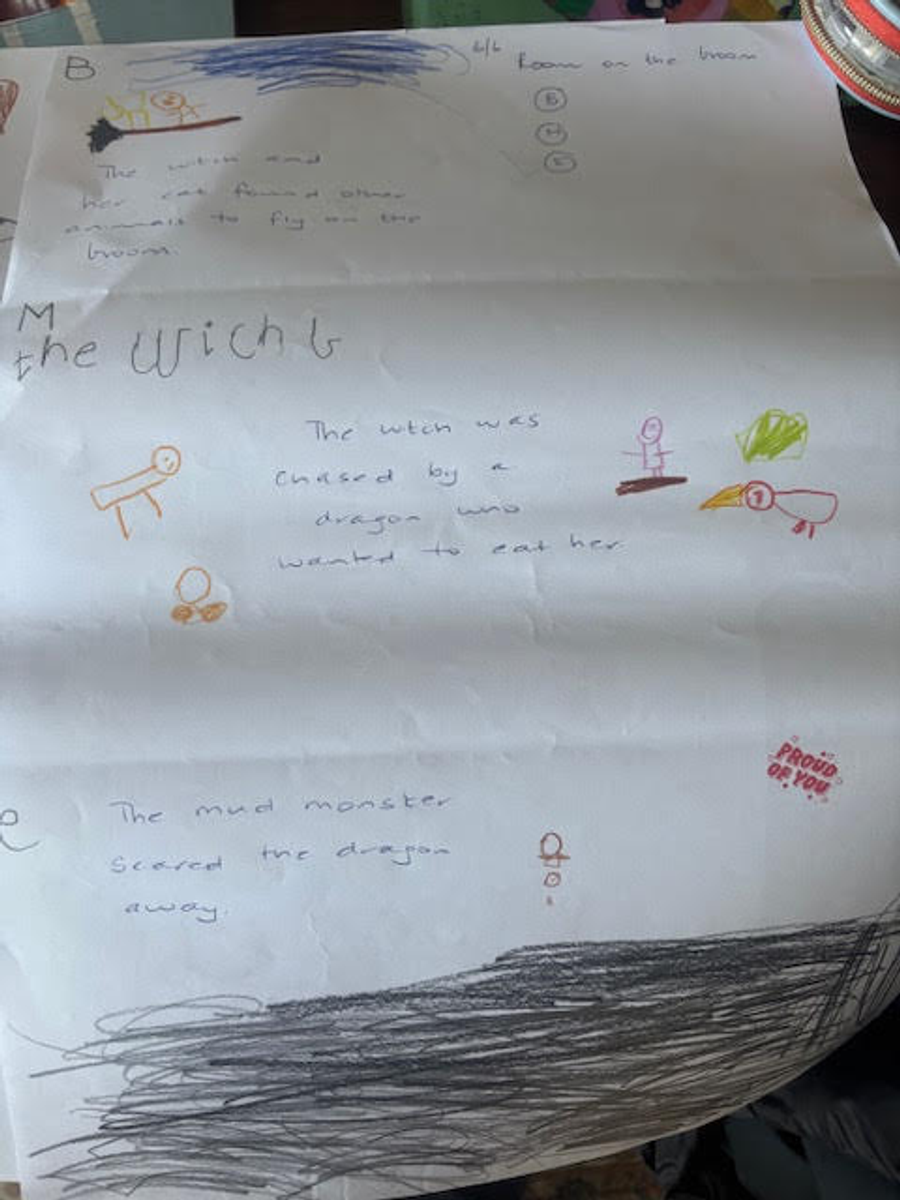 B
6/6 Room on the broom
B
M
E
The witch and
her cat found other
animals to fly on the
broom.
M
the wich b
The wtch was
chased by a
dragon who
wanted to eat her
PROUD
OF YOU
e
The mud monster
scared the dragon
away.